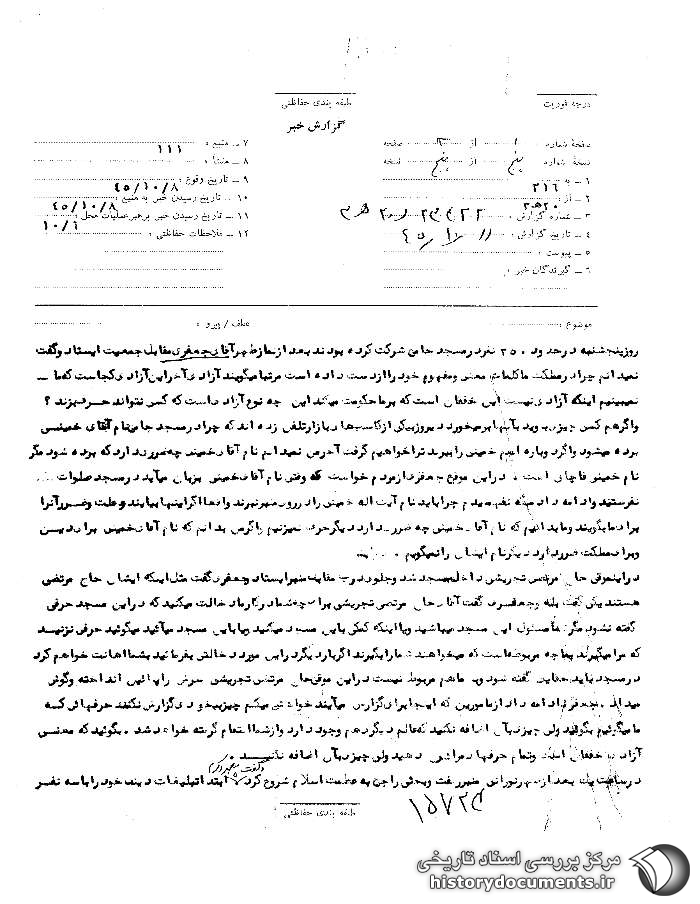 درجه فوریت
طبقه بندی حفاظتی
گزارش خبر
صفحهٔ شماره ۱ از ۳ صفحه
نسخهٔ شماره پنج از پنج نسخه
۱ ـ به ۳۱۶
۲ ـ از ۲۰ه۲۰
۳ ـ شماره گزارش
۴ ـ تاریخ گزارش ۴۵/۱۰/۱۱
۵ ـ پیوست
۶ ـ گیرندگان خبر
۷ ـ منبع : ۱۱۱
۸ ـ منشأ :
۹ ـ تاریخ وقوع : ۴۵/۱۰/۸
۱۰ ـ تاریخ رسیدن خبر به منبع ۴۵/۱۰/۸
۱۱ ـ تاریخ رسیدن خبر برهبر عملیات محل : ۱۰/۹
۱۲ ـ ملاحظات حفاظتی :
موضوع :
عطف / پیرو :
روز پنجشنبه در حدود ۲۵۰ نفر در مسجد جامع شرکت کرده بودند بعد از نماز ظهر آقای جعفری مقابل جمعیت ایستاد و گفت
نمیدانم چرا در مملکت ما کلمات معنی و مفهوم خود را از دست داده است مرتبا میگویند آزادی آخر این آزادی کجاست که ما ـ
نمیبینیم اینکه آزادی نیست این خفقان است که بر ما حکومت میکند این چه نوع آزادی است که کسی نتواند حرف بزند ؟
واگر هم کسی چیزی بگوید بآنها بر میخورد دیروز یکی از کاسبهای بازار تلفن زده اند که چرا در مسجد جامع نام آقای خمینی
برده میشود واگر دوباره اسم خمینی را ببرند ترا خواهیم گرفت آخر من نمیدانم نام آقای خمینی چه ضرری دارد که برده شود مگر
نام خمینی قاچاق است ، در این موقع جعفری از مردم خواست که وقتی نام آقای خمینی بزبان میآید در مسجد صلوات
نفرستید وادامه داد من نفهمیدم چرا باید نام آیت اله خمینی را در روی منبر نبرند واقعا اگر اینها بیایند و علت و ضرر آنرا
برای ما بگویند و ما بدانیم که نام آقای خمینی چه ضرری دارد دیگر حرف نمیزنیم و اگر من بدانم که نام آقای خمینی برای دین
و برای مملکت ضرر دارد دیگر نام ایشان را نمیگویم
در اینموقع حاج مرتضی تجریشی داخل مسجد شد و جلوی درب مقابله منبر ایستاد و جعفری گفت مثل اینکه ایشان حاج مرتضی
هستند یکی گفت بله و جعفری گفت آقای حاج مرتضی تجریشی برای چه شما در کار ما دخالت میکنید که در این مسجد حرفی
گفته نشود مگر شما مسئول این مسجد میباشید و یا اینکه کمکی باین مسجد میکنید و یا باین مسجد میآئید میگوئید حرفی نزنید
که مرا میگیرند بشما چه مربوط است که میخواهند شما را بگیرند اگر بار دیگر در این مورد دخالتی بفرمائید بشما اهانت خواهم کرد
در مسجد باید حقایق گفته شود و بما هم مربوط نیست در این موقع حاج مرتضی تجریشی سرش را پائین انداخته و گوش
میداد ، جعفری ادامه داد از مامورین که اینجا برای گزارش میآیند خواهش میکنم چیز بیخودی گزارش نکنند حرفهائی که
ما میگوئیم بگوئید ولی چیزی بآن اضافه نکنید که عالم دیگر هم وجود دارد و از شما انتقام گرفته خواهد شد . بگوئید که معنی
آزادی خفقان است و تمام حرفها را گزارش دهید ولی چیزی بآن اضافه نکنید .
در ساعت یک بعد از ظهر نورانی منبر رفت و بحثی راجع به عظمت اسلام شروع کرد و گفت پیغمبر اکرم ابتدا تبلیغات دینی خود را با سه نفر
۱۵۷۲۴
طبقه بندی حفاظتی
مرکز بررسی اسناد تاریخی
historydocuments.ir